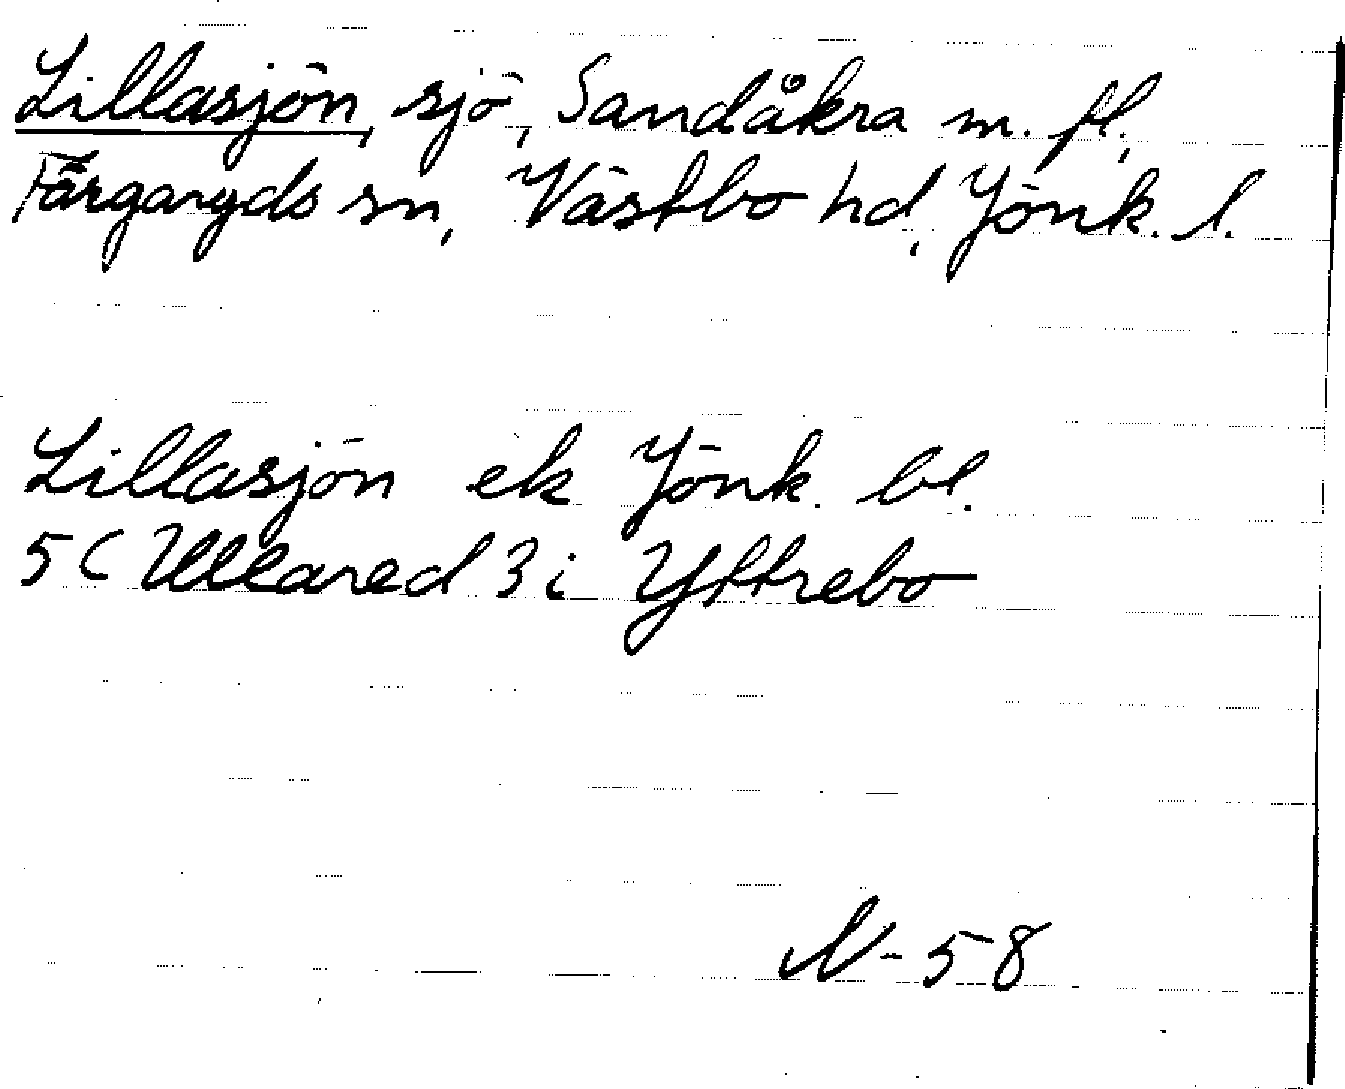 Lillasjön, sjö, Sandåkra m. fl.,
Färgaryds sn, Västbo hd, Jönk. l.
Lillasjön ek Jönk. bl.
5 C Ullared 3 i Yttrebo
N-58